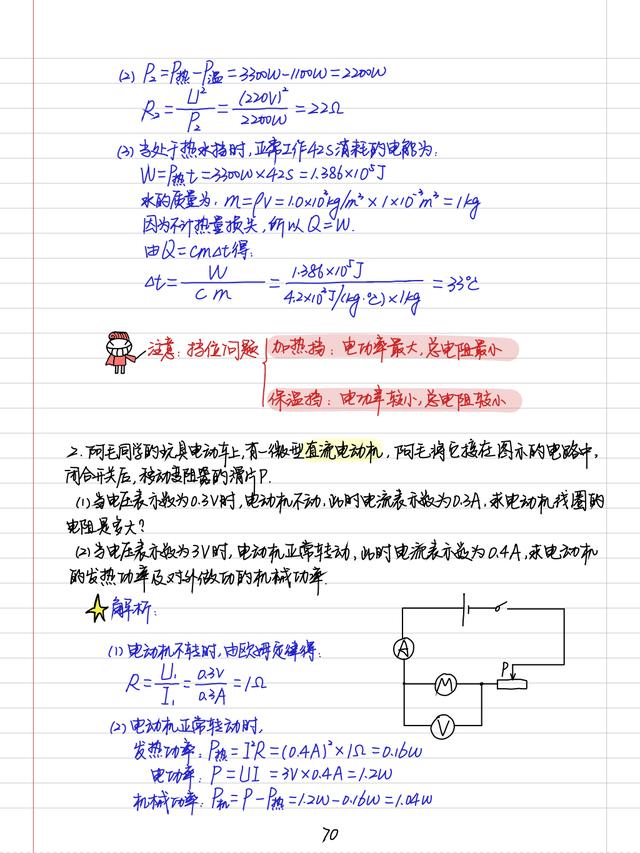 (2) P₂=P热-P温=3300W-1100W=2200W
R₂=U²/P₂=(220V)²/2200W=22Ω
(3) 当处于热水挡时,正常工作42s消耗的电能为:
W=P热t=3300W×42s=1.386×10⁵J
水的质量为: m=ρV=1.0×10³kg/m³×1×10⁻³m³=1kg
因为不计热量损失,所以Q=W.
由Q=cmΔt得:
Δt=W/cm=1.386×10⁵J/4.2×10³J/(kg·℃)×1kg=33℃
注意:挡位问题
加热挡:电功率最大,总电阻最小
保温挡:电功率较小,总电阻较小
2.阿毛同学的玩具电动车上,有一微型直流电动机,阿毛将它接在图示的电路中,
闭合开关后,移动变阻器的滑片P.
(1)当电压表示数为0.3V时,电动机不动,此时电流表示数为0.3A,求电动机线圈的
电阻是多大?
(2)当电压表示数为3V时,电动机正常转动,此时电流表示数为0.4A,求电动机
的发热功率及对外做功的机械功率.
解析:
(1)电动机不转时,由欧姆定律得:
R=U₁/I₁=0.3V/0.3A=1Ω
(2)电动机正常转动时,
发热功率:P热=I²R=(0.4A)²×1Ω=0.16W
电功率:P=UI=3V×0.4A=1.2W
机械功率:P机=P-P热=1.2W-0.16W=1.04W
A
P
M
V
70